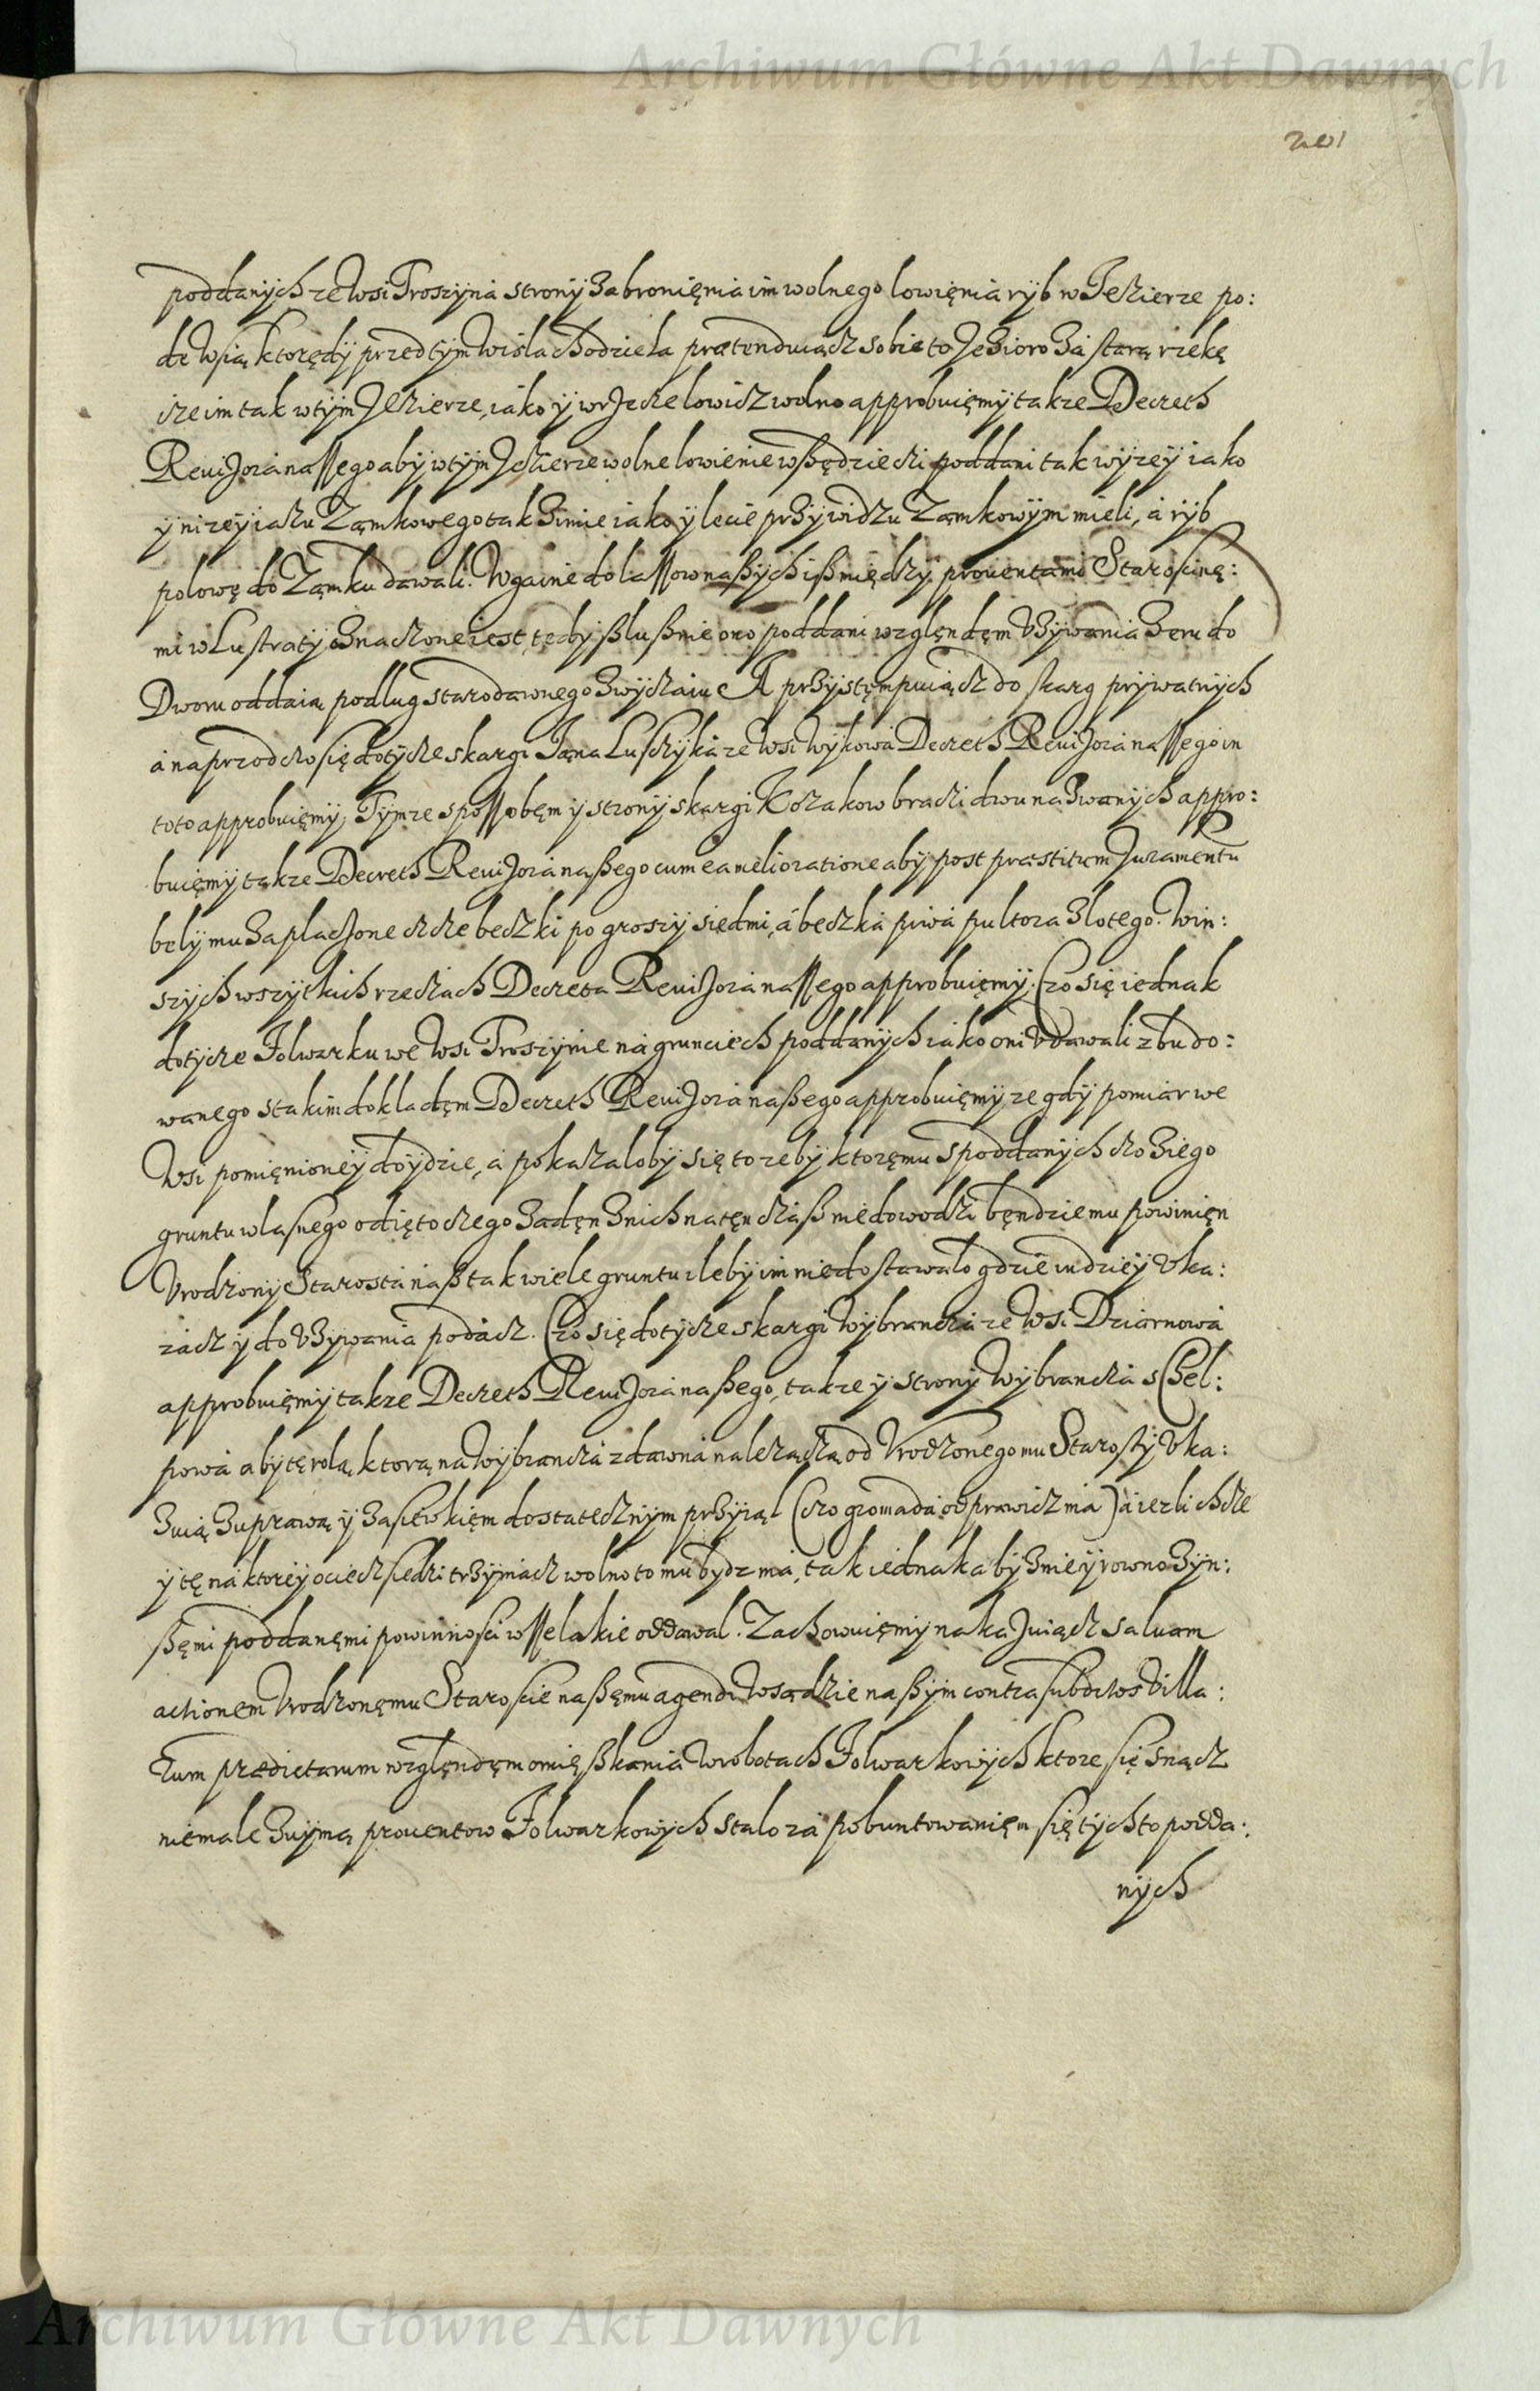 Archiwum Główne Akt Dawnych
201
poddanych ze wsi Troszyna strony zabronięnia im wolnego lowięnia ryb w Jezierze po:
de wsią ktorędy przed tym wisla chodziela prætenduiącz sobie to Jezioro za starą rzekę
że im tak w tym Jezierze, iako y w rzecze lowicz wolno approbuięmy takze Decreth
Reuisora nassego aby w tym Jezierze wolne lowienie wszędzie ci poddani tak wyzey iako
y nizey iazu Zamkowego tak zimie iako y lecie przy widzu Zamkowym mieli, a ryb
polowę do Zamku dawali. Wgaine do lassow naszych isz między prouentami Starościnę:
mi w Lustratiy oznaczone iest, tedy iż slusznie ono poddani względem vzywania zeru do
Dworu oddaią podlug starodawnego zwyczaiu. A przystępuiącz do skarg prywatnych
a naprzod czo się dotycze skargi Jana Lusczyka ze wsi Wykowa Decreth Reuisora nassego in
toto approbuięmy, Tymze spossobęm y strony skargi Kozakow braci dwu nazwanych appro:
buięmy takze Decreth Reuisora naszego cum ea melioratione aby post præstitum Juramentu
bely mu zaplaczone czcze beczki po groszy siedmi, a beczka piwa pultora zlotego. W in:
szych wszytkich rzeczach Decreta Reuisora nassego approbuięmy. Czo się iednak
dotycze Folwarku we wsi Troszynie na grunciech poddanych iako oni vdawali zbudo:
wanego s takim dokladęm Decreth Reuisora naszego approbuięmy, ze gdy pomiar we
wsi pomięnioney doydzie, a pokazaloby się to zeby ktoręmu s poddanych czo ziego
gruntu wlasnego odięto czego żadęn z nich na tęn czasz nie dowodzi będzie mu powinięn
Vrodzony Starosta nasz tak wiele gruntu ileby im nie dostawalo gdzie indziey vka:
zacz y do vzywania podacz. Czo się dotycze skargi wybrancza ze wsi Dziarnowa
approbuięmy takze Decreth Reuisora naszego, takze y strony Wybrancza s Chel:
powa aby tę rolą, ktorą na wybrancza zdawna nalezączą od Vrodzonego mu Starosty vka:
zuią z uprawą y zasiewkięm dostatecznym przyiąl (czo gromada odprawicz ma) a iezli chcze
y tę na ktorey ociecz siedzi trzymacz wolno to mu bydz ma, tak iednak aby z niey rowno z in:
szęmi poddanęmi powinnosci wsselakie oddawal. Zachowuięmy nakazuiącz saluam
actionem Vrodzonęmu Staroscie naszęmu agendi w sądzie naszym contra subditos Villa:
rum prædictarum względęm omięszkania w robotach Folwarkowych ktore się snącz
niemale z uymą prouentow Folwarkowych stalo za pobuntowanięm się tych to podda:
nych
Archiwum Główne Akt Dawnych